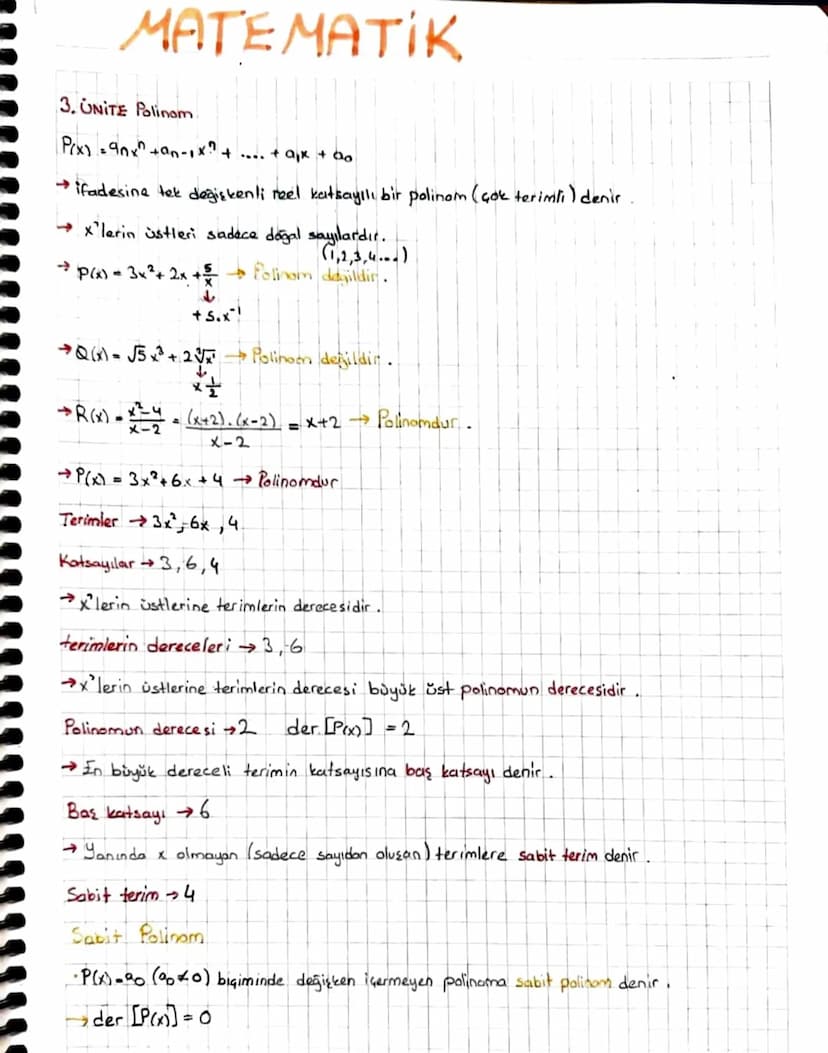 MATEMATİK
3. ÜNİTE Polinom
P(x) = aₙxⁿ + aₙ₋₁xⁿ + .... + a₁x + a₀
→ ifadesine tek değişkenli reel katsayılı bir polinom (çok terimli) denir.
→ x'lerin üstleri sadece doğal sayılardır.
(1,2,3,4....)
→ P(x) = 3x² + 2x + 5/x → Polinom değildir.
↓
+5.x⁻¹
→ Q(x) = √5 x³ + 2∛x → Polinom değildir.
↓
x 1/2
→ R(x) = x²-4/x-2 = (x+2).(x-2)/x-2 = x+2 → Polinomdur.
→ P(x) = 3x² + 6x + 4 → Polinomdur
Terimler → 3x², 6x, 4
Katsayılar → 3, 6, 4
→ x'lerin üstlerine terimlerin derecesidir.
terimlerin dereceleri → 3, 6
→ x'lerin üstlerine terimlerin derecesi büyük üst polinomun derecesidir.
Polinomun derecesi → 2 der.[P(x)] = 2
→ En büyük dereceli terimin katsayısına baş katsayı denir.
Baş katsayı → 6
→ Yanında x olmayan (sadece sayıdan oluşan) terimlere sabit terim denir.
Sabit terim → 4
Sabit Polinom
· P(x) = a₀ (a₀ ≠ 0) biçiminde değişken içermeyen polinoma sabit polinom denir.
→ der [P(x)] = 0